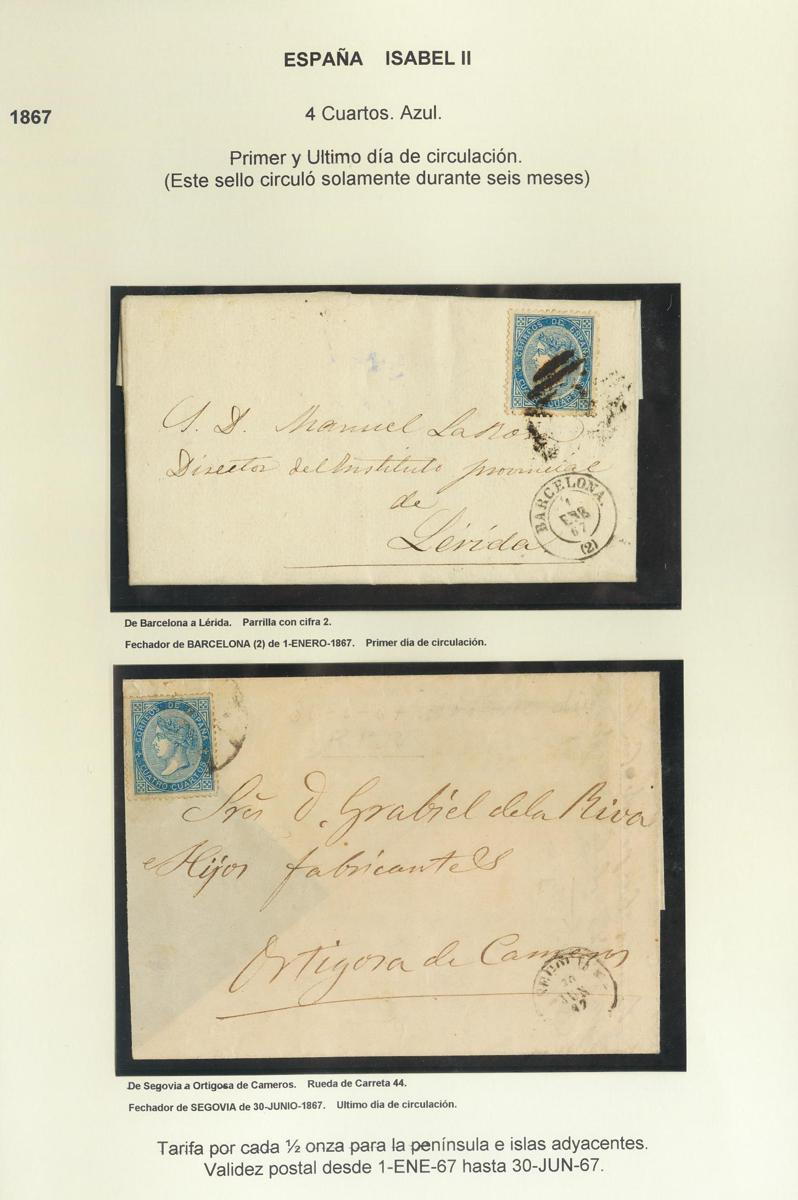 ESPAÑA ISABEL II
1867
4 Cuartos. Azul.
Primer y Ultimo día de circulación.
(Este sello circuló solamente durante seis meses)
CORREOS DE ESPAÑA
CUARTOS
S. D. Manuel
Director del Instituto provincial
de
Lérida
BARCELONA.
1
ENE
67
(2)
De Barcelona a Lérida. Parrilla con cifra 2.
Fechador de BARCELONA (2) de 1-ENERO-1867. Primer día de circulación.
CORREOS DE ESPAÑA
CUATRO CUARTOS
Sres D. Grabiel de la Riva
e Hijos fabricantes
Ortigosa de Cameros
SEGOVIA
30
JUN
67
De Segovia a Ortigosa de Cameros. Rueda de Carreta 44.
Fechador de SEGOVIA de 30-JUNIO-1867. Ultimo día de circulación.
Tarifa por cada ½ onza para la península e islas adyacentes.
Validez postal desde 1-ENE-67 hasta 30-JUN-67.